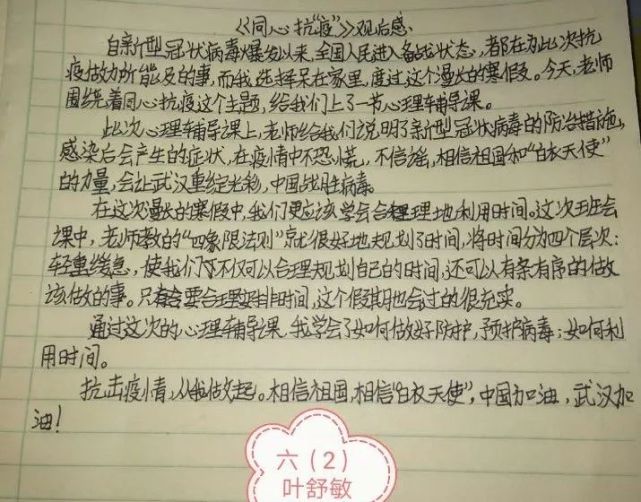 《同心抗“疫”》观后感
自新型冠状病毒爆发以来,全国人民进入备战状态,都在为此次抗
疫做力所能及的事,而我选择呆在家里,度过这个漫长的寒假。今天,老师
围绕着同心抗疫这个主题,给我们上了一节心理辅导课。
此次心理辅导课上,老师给我们说明了新型冠状病毒的防治措施,
感染后会产生的症状,在疫情中不恐慌,不信谣,相信祖国和“白衣天使”
的力量,会让武汉重绽光彩,中国战胜病毒。
在这次漫长的寒假中,我们更应该学会合理地利用时间。这次班会
课中,老师教的“四象限法则”就很好地规划了时间,将时间分为四个层次:
轻重缓急,使我们不仅可以合理规划自己的时间,还可以有条有序的做
该做的事。只要合理安排时间,这个假期也会过的很充实。
通过这次的心理辅导课,我学会了如何做好防护,预护病毒;如何利
用时间。
抗击疫情,从我做起。相信祖国,相信“白衣天使”,中国加油,武汉加
油!
六(2)
叶舒敏